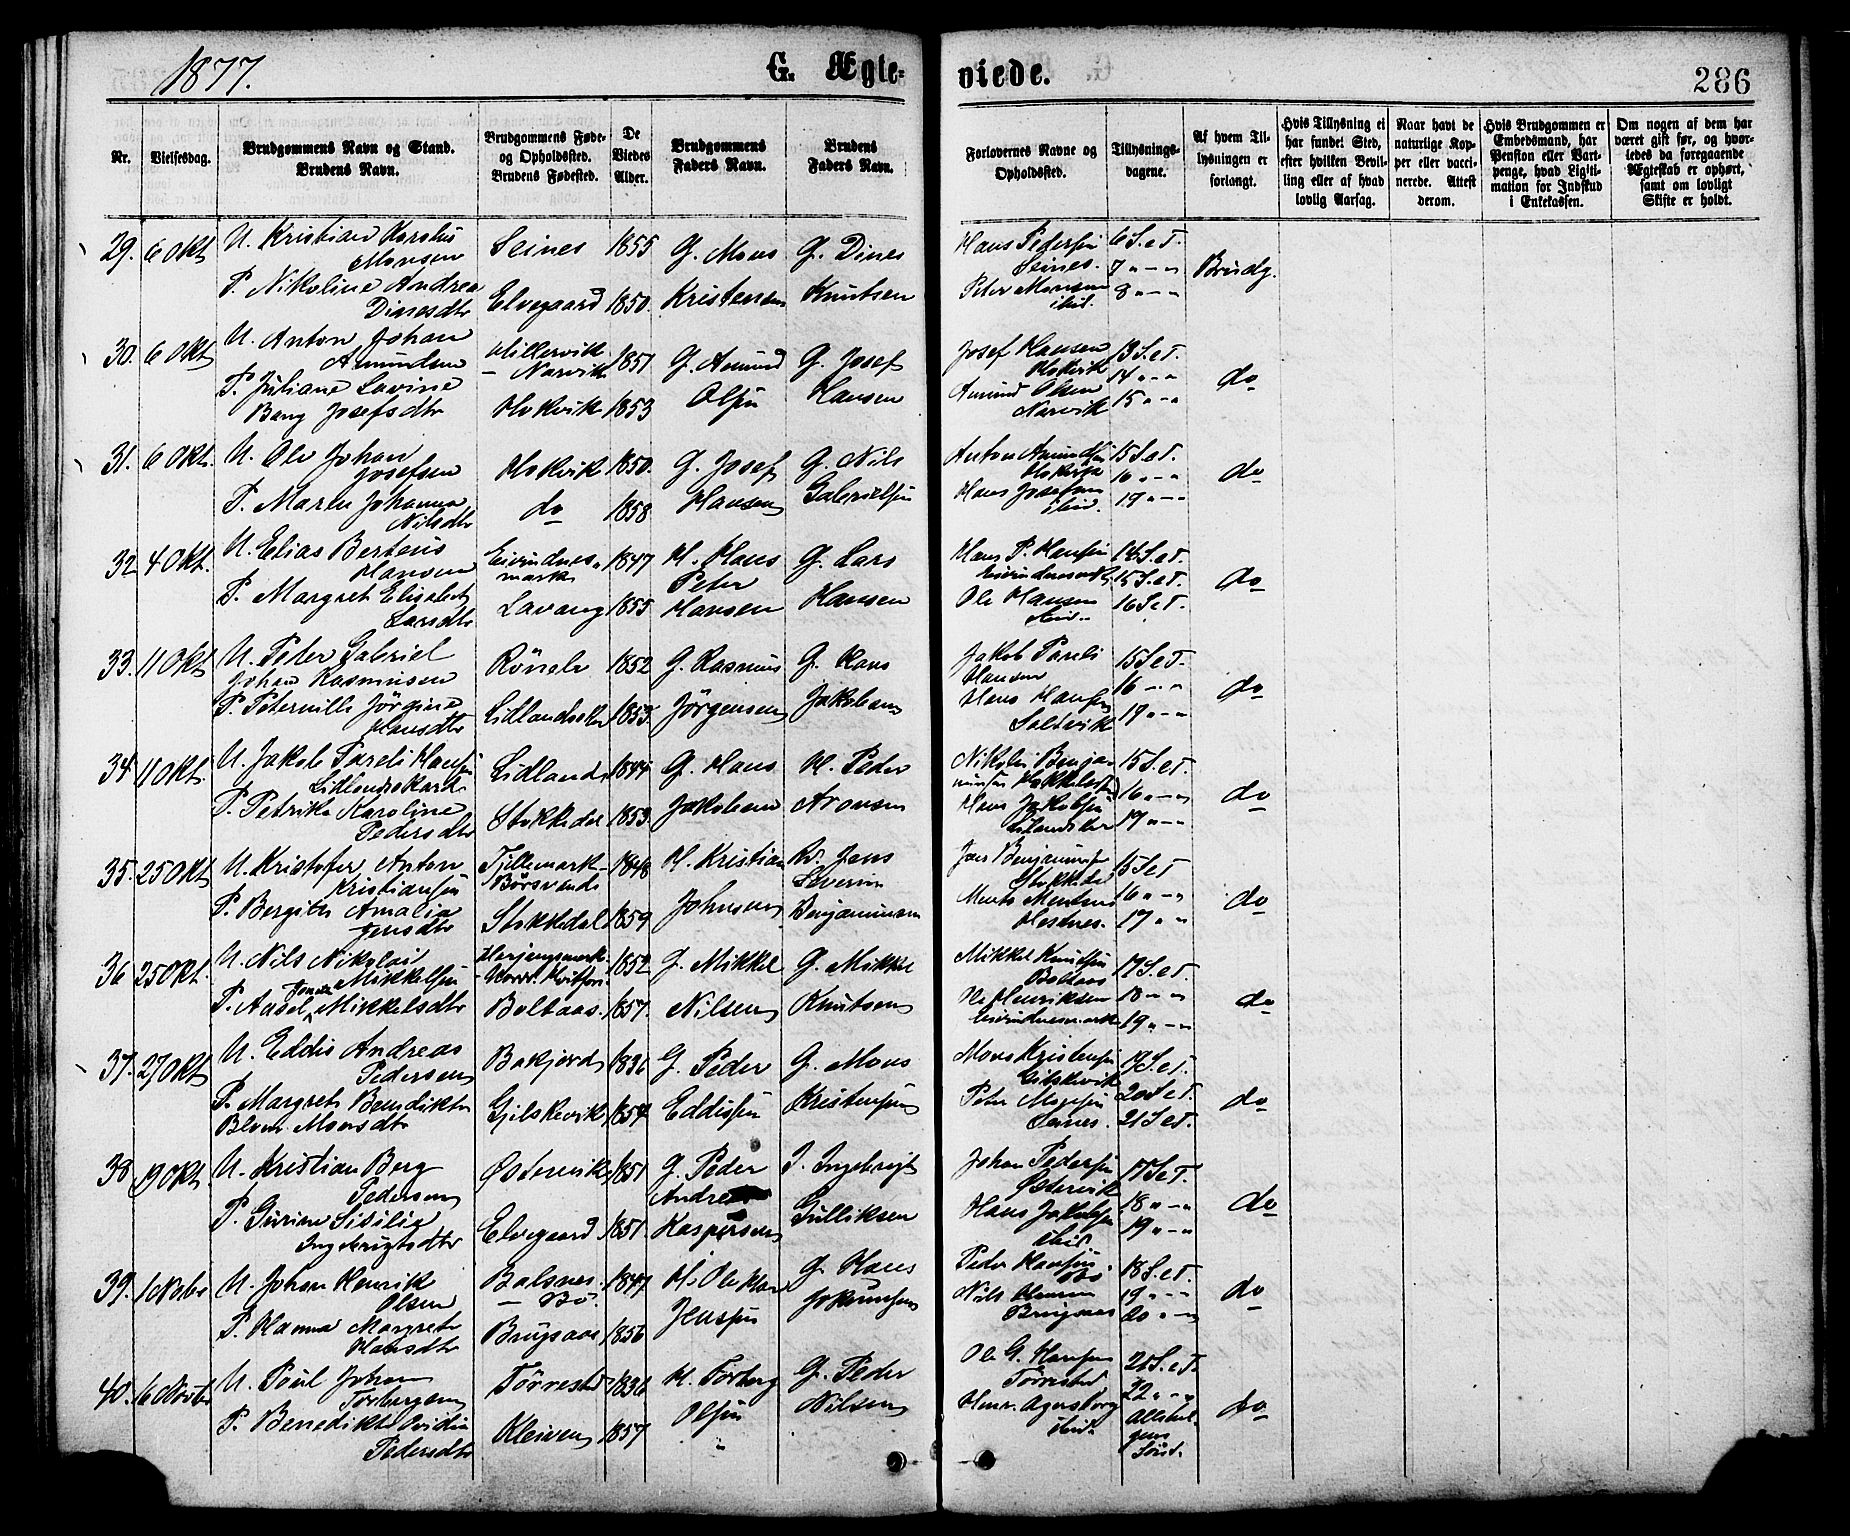 1877.
G. Ægte-
viede.
286
Nr.
Vielsesdag.
Brudgommens Navn og Stand.
Brudens Navn.
Brudgommens Føde-
og Opholdssted.
Brudens Fødested.
De
Viedes
Alder.
Brudgommens
Faders Navn.
Brudens
Faders Navn.
Forlovernes Navne og
Opholdssted.
Tillysnings-
dagene.
Af hvem Til-
lysningen er
forlangt.
Hvis Tillysning ei
har fundet Sted,
efter hvilken Bevil-
ling eller af hvad
lovlig Aarsag.
Naar havt de
naturlige Kop-
per eller vacci-
nerede. Attest
derom.
Hvis Brudgommen er
Embedsmand, har
Pension eller Vart-
penge, hvad Ligiti-
mation for Indskud
i Enkekassen.
Om nogen af dem har
været gift før, og hvor-
ledes da foregaaende
Ægteskab er ophørt,
samt om lovligt
Skifte er holdt.
29. 6 Okt
U. Kristian Karelius
Monsen
P. Nikoline Andrea
Dinesdtr
Seines 1855
Elvegaard 1850.
G. Mons
Kristensen
G. Dines
Knutsen
Hans Pedersen
Seines.
Peter Monsen
ibid.
6 S. e T.
7 " - "
8 " - "
Brudg.
30. 6 Okt
U. Anton Johan
Amundsen
P. Juliane Lovise
Berg Josefsdtr
Hillervik
- Narvik 1851
Hokvik 1853
G. Amund
Olsen
G. Josef
Hansen
Josef Hansen
Hokvik
Amund Olsen
Narvik
13 S. e T.
14 " - "
15 " - "
do
31. 6 Okt.
U. Ole Johan
Josefsen
P. Maren Johanna
Nilsdtr
Hokvik 1850.
do 1858
G. Josef
Hansen
G. Nils
Gabrielsen
Anton Amundsen
Hokvik
Hans Josefsen
ibid.
15 S. e T.
16 " - "
17 " - "
do
32 4 Okt.
U. Elias Berteus
Hansen
P. Margret Elisabet
Larsdtr
Eivindnes-
mark 1847
Lavang 1855
H. Hans
Peter
Hansen
G. Lars
Hansen
Hans P. Hansen
Eivindnesmark
Ole Hansen
ibid.
14 S. e T.
15 S. e T.
16 S. e T.
do
33. 11 Okt
U. Peter Gabriel
Johan Rasmusen
P. Peternille Jörgine
Hansdtr
1852
Lidlandsskar 1853.
G. Rasmus
Jörgensen
G. Hans
Jakobsen
Jakob Pareli
Hansen
Hans Hansen
Saltvik
15 S. e T.
16 - "
17 " - "
do
34 11 Okt.
U. Jakob Pareli Hansen
Lidlandsskard
P. Petrika Karoline
Pedersdtr
Lidlands 1844
Stokkedal 1853.
G. Hans
Jakobsen
H. Peder
Aronsen
Nikolai Benja-
minsen
Hans Jakobsen
15 S. e T.
16 " - "
17 " - "
do
35. 25 Okt
U. Kristofer Anton
Kristiansen
P. Bergite Amalia
Jensdtr
Tjellemark-
Börsvand 1848
Stokkedal 1859
H. Kristian
Johnsen
Jens
Severin
Benjaminsen
Jens Benjaminsen
Stokkedal
Mentz Mentzen
Hestnes.
15 S e T
16 " - "
17 " - "
do
36 25 Okt.
U. Nils Nikolai
Mikkelsen
P. Aasel Mikkelsdtr
Herjangsmark- 1852
Boltaas. 1857.
G. Mikkel
Nilsen
G. Mikkel
Knutsen
Mikkel Knutsen
Boltaas
Ole Henriksen
Eivindnesmark
17 S. e T.
18 " - "
19 " - "
do
37. 27 Okt
U. Eddis Andreas
Pedersen
P. Margrete Benedikte
Monsdtr
Bakjord 1836
Gjilskevik 1854
G. Peder
Eddissen
G. Mons
Kristensen
Mons Kristensen
Peter Monsen
Seines.
19 S. e T.
20 S e T.
21 S. e T.
do
38 19 Okt.
U. Kristian Berg
Pedersen
P. Gurine Sisilie
Ingebrigtsdtr
Østervik 1851
Elvegaard 1851.
G. Peder
Andreas
Kaspersen
I. Ingebrigt
Gulliksen
Johan Pedersen
Østervik
Hans Jakobsen
ibid
17 S e T.
18 " - "
19 " - "
do
39. 1 Nobr
U. Johan Henrik
Olsen
P. Hanna Margrete
Hansdtr
Balsnes.
- Bö. 1847
1856
H. Ole
Jensen
G. Hans
Peder Hansen
Bö
Nils Hansen
18 S. e T.
19 " - "
20 " - "
do
40. 6 Novbr
U. Poul Johan
Torbergsen
P. Benedikte Ovidia
Pedersdtr
Törrestad 1836
Kleiven 1857
H. Torberg
Olsen
G. Peder
Nilsen
Ole G. Hansen
Törrestad
Henr. Agersborg
ibid.
21 S. e T.
22 " - "
Allehel-
gens
Sönd.
do